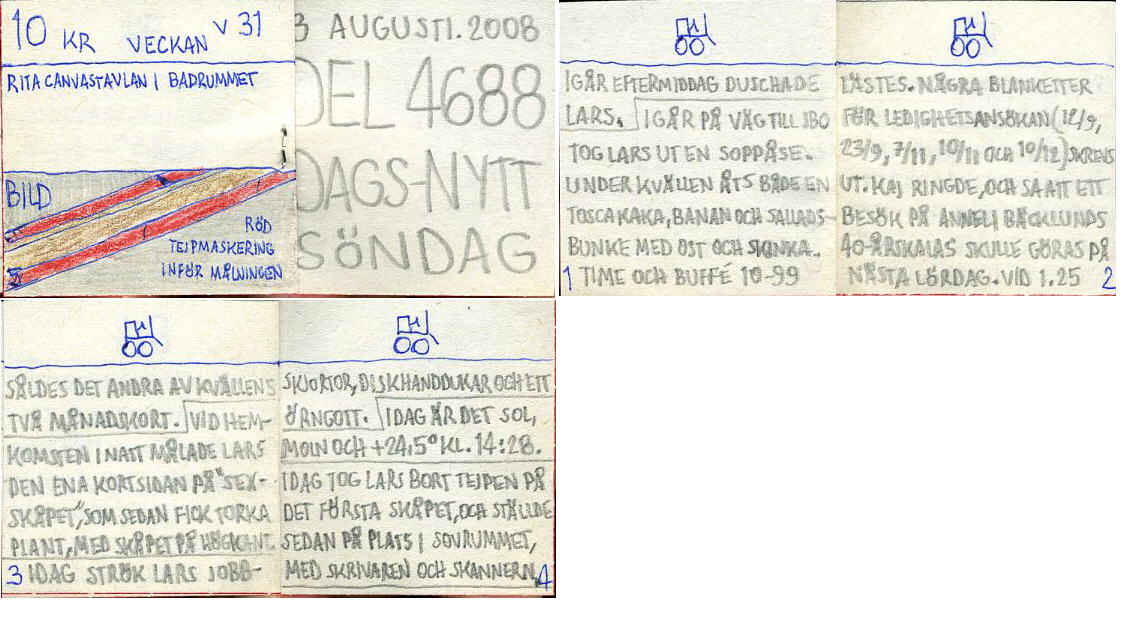 10 KR VECKAN V 31
RITA CANVASTAVLAN I BADRUMMET
BILD
RÖD
TEJPMASKERING
INFÖR MÅLNINGEN
3 AUGUSTI.2008
DEL 4688
DAGS-NYTT
SÖNDAG
IGÅR EFTERMIDDAG DUSCHADE
LARS. IGÅR PÅ VÄG TILL JBO
TOG LARS UT EN SOPPÅSE.
UNDER KVÄLLEN ÅTS BÅDE EN
TOSCAKAKA, BANAN OCH SALLADS-
BUNKE MED OST OCH SKINKA.
1 TIME OCH BUFFÉ 10-99
LÄSTES. NÅGRA BLANKETTER
FÖR LEDIGHETSANSÖKAN (12/9,
23/9, 7/11, 10/11 OCH 10/12) SKREVS
UT. KAJ RINGDE, OCH SA ATT ETT
BESÖK PÅ ANNELI BÄCKLUNDS
40-ÅRSKALAS SKULLE GÖRAS PÅ
NÄSTA LÖRDAG. VID 1.25 2
SÅLDES DET ANDRA AV KVÄLLENS
TVÅ MÅNADSKORT. VID HEM-
KOMSTEN I NATT MÅLADE LARS
DEN ENA KORTSIDAN PÅ "SEX-
SKÅPET", SOM SEDAN FICK TORKA
PLANT, MED SKÅPET PÅ HÖGKANT.
3 IDAG STRÖK LARS JOBB-
SKJORTOR, DISKHANDDUKAR OCH ETT
ÖRNGOTT. IDAG ÄR DET SOL,
MOLN OCH +24,5° KL. 14:28.
IDAG TOG LARS BORT TEJPEN PÅ
DET FÖRSTA SKÅPET, OCH STÄLLDE
SEDAN PÅ PLATS I SOVRUMMET,
MED SKRIVAREN OCH SKANNERN. 4